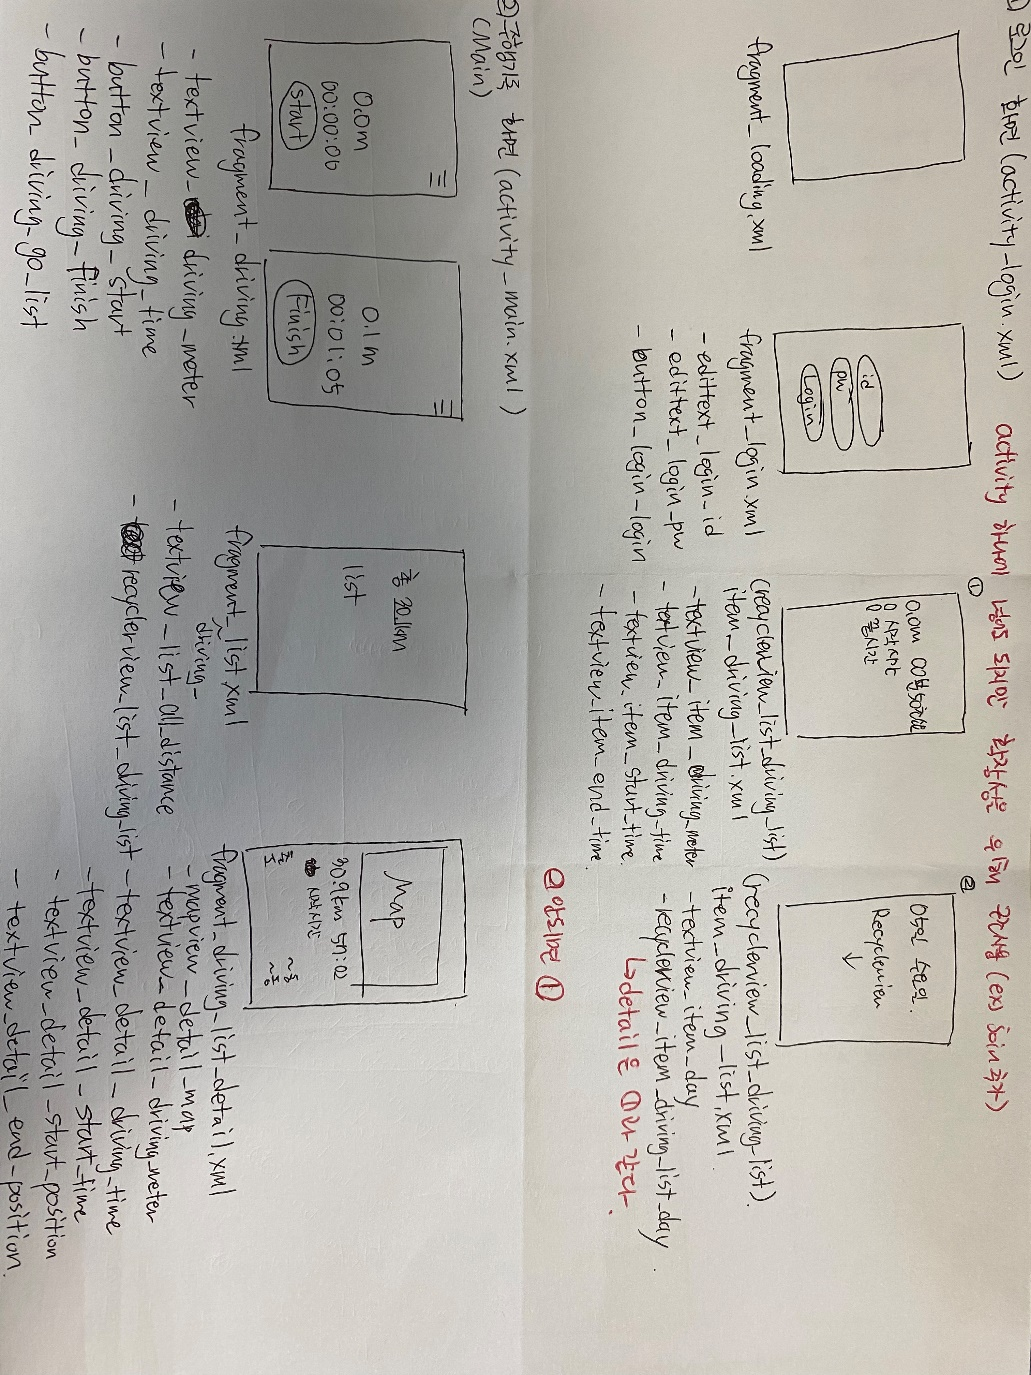 1) 로그인 화면 (activity_login.xml)
activity 하나에 넣어도 되지만 확장성을 위해 관리를 (ex) join 추가)
fragment_loading.xml
id
pw
Login
fragment_login.xml
- edittext_login_id
- edittext_login_pw
- button_login_login
①
0.0m 00분
(recyclerview_list_driving_list)
item_driving_list.xml
- textview_item_driving_meter
- textview_item_driving_time
- textview_item_start_time.
- textview_item_end_time.
②
Recyclerview
↓
(recyclerview_list_driving_list).
item_driving_list.xml.
- textview_item_day
- recyclerview_item_driving_list_day.
↳ detail은 ①과 같다.
①
2) 주행기록 화면 (activity_main.xml)
(Main)
0.0m
00:00:00
start
0.1m
00:01:05
Finish
fragment_driving.xml
- textview_driving_meter
- textview_driving_time
- button_driving_start
- button_driving_finish
- button_driving_go_list
총 20.1km
list
fragment_driving_list.xml
- textview_list_all_distance
- recyclerview_list_driving_list
Map
30.9km 5h:02
시작시간
fragment_driving_list_detail.xml
- mapview_detail_map
- textview_detail_driving_meter
- textview_detail_driving_time
- textview_detail_start_time
- textview_detail_start_position
- textview_detail_end_position.